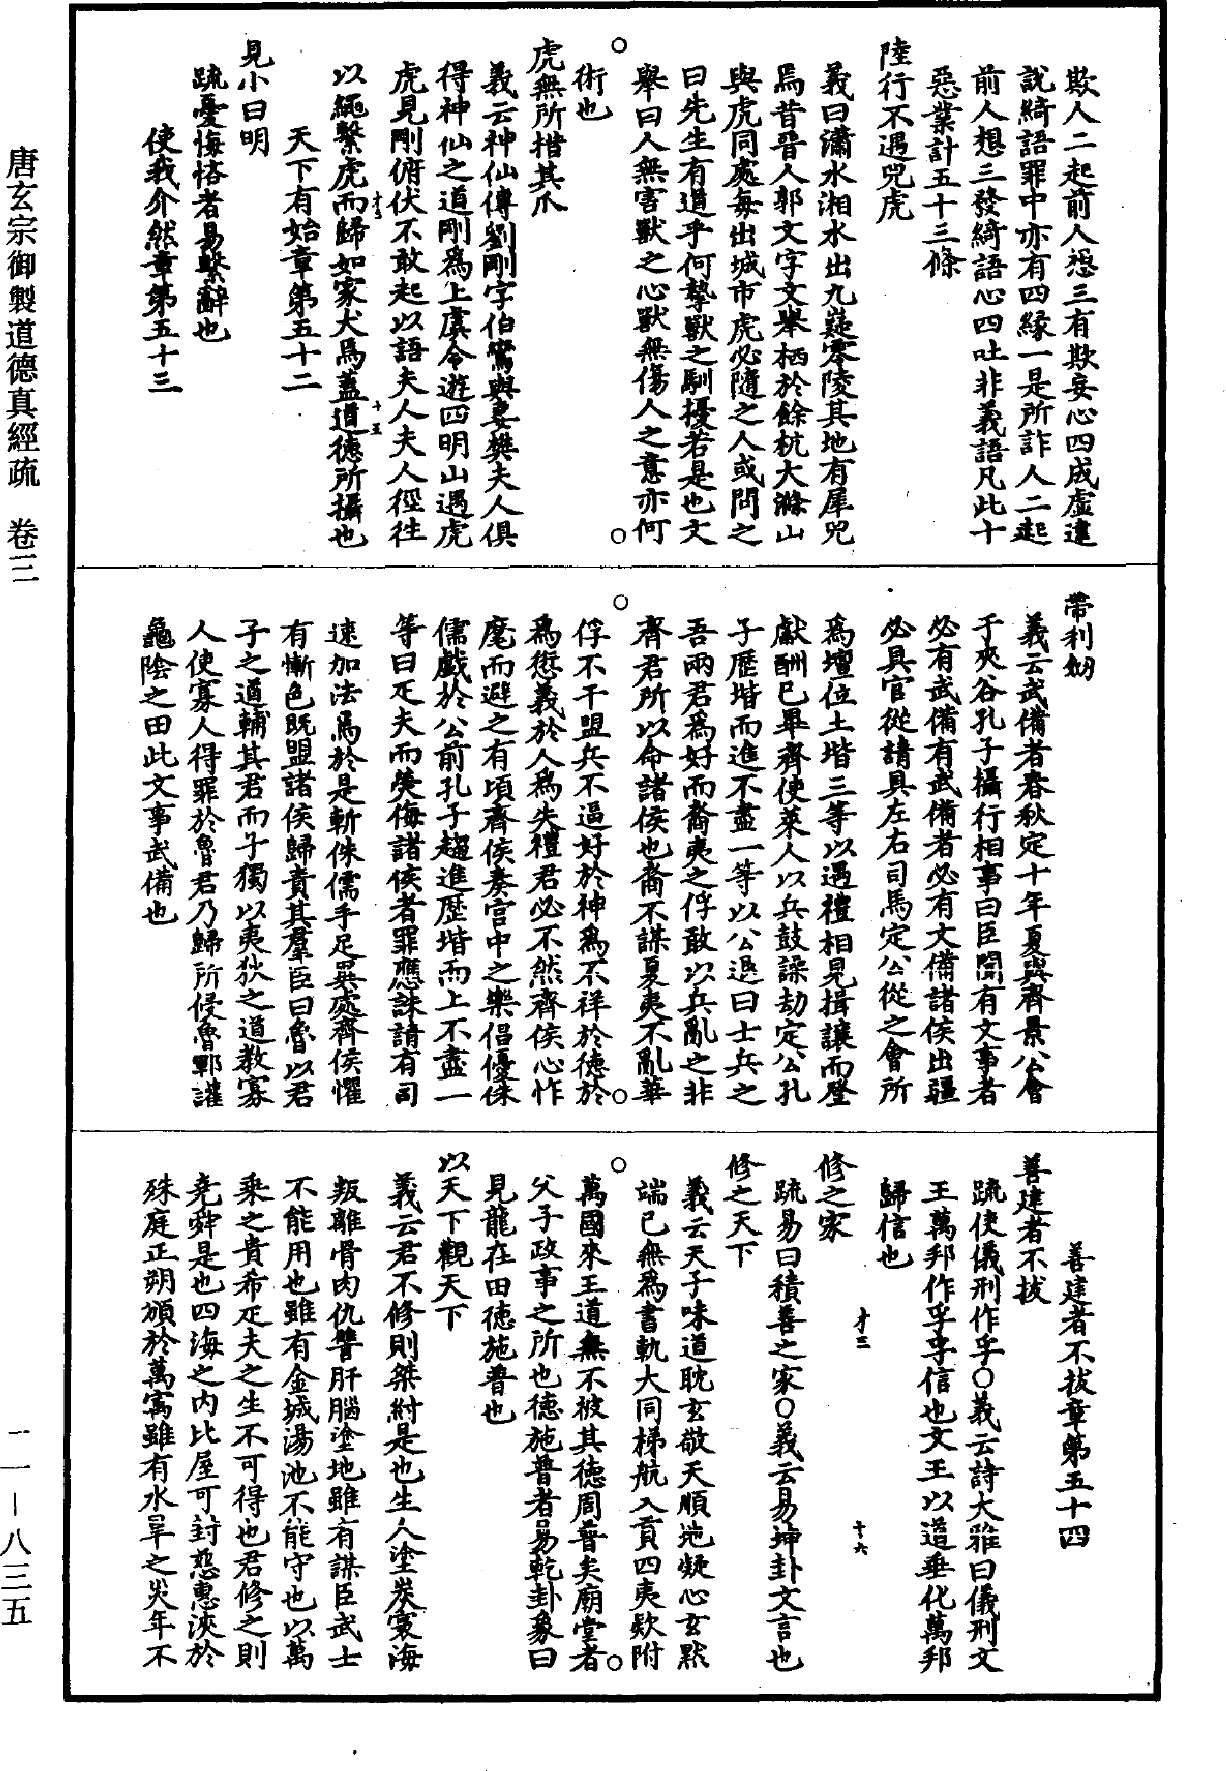 欺人二起前人想三有欺妄心四成虛違
說綺語罪中亦有四緣一是所詐人二起
前人想三發綺語心四吐非義語凡此十
惡業計五十三條
陸行不遇兕虎
義曰瀟水湘水出九嶷零陵其地有犀兕
焉昔晉人郭文字文舉栖於餘杭大滌山
與虎同處每出城市虎必隨之人或問之
曰先生有道乎何摯獸之馴擾若是也文
舉曰人無害獸之心獸無傷人之意亦何
術也
虎無所措其爪
義云神仙傳劉剛字伯鸞與妻樊夫人俱
得神仙之道剛為上虞令遊四明山遇虎
虎見剛俯伏不敢起以語夫人夫人徑往
以繩繫虎而歸如家犬焉蓋道德所攝也
十五
天下有始章第五十二
見小曰明
疏憂悔悋者易繫辭也
使我介然章第五十三
帶利劒
義云武備者春秋定十年夏與齊景公會
于夾谷孔子攝行相事曰臣聞有文事者
必有武備有武備者必有文備諸侯出疆
必具官從請具左右司馬定公從之會所
為壇位土堦三等以遇禮相見揖讓而登
獻酬已畢齊使萊人以兵鼓譟劫定公孔
子歷堦而進不盡一等以公退曰士兵之
吾兩君為好而裔夷之俘敢以兵亂之非
齊君所以命諸侯也裔不謀夏夷不亂華
俘不干盟兵不逼好於神為不祥於德於
為愆義於人為失禮君必不然齊侯心怍
麾而避之有頃齊侯奏宮中之樂倡優侏
儒戲於公前孔子趨進歷堦而上不盡一
等曰疋夫而熒侮諸侯者罪應誅請有司
速加法焉於是斬侏儒手足異處齊侯懼
有慚色既盟諸侯歸責其羣臣曰魯以君
子之道輔其君而子獨以夷狄之道教寡
人使寡人得罪於魯君乃歸所侵魯鄆讙
龜陰之田此文事武備也
善建者不拔章第五十四
善建者不拔
疏使儀刑作孚○義云詩大雅曰儀刑文
王萬邦作孚孚信也文王以道垂化萬邦
歸信也
才三
十六
修之家
疏易曰積善之家○義云易坤卦文言也
修之天下
義云天子味道耽玄敬天順地凝心玄默
端已無為書軌大同梯航入貢四夷欵附
萬國來王道無不被其德周普矣廟堂者
父子政事之所也德施普者易乾卦象曰
見龍在田德施普也
以天下觀天下
義云君不修則桀紂是也生人塗炭寰海
叛離骨肉仇讐肝腦塗地雖有謀臣武士
不能用也雖有金城湯池不能守也以萬
乘之貴希疋夫之生不可得也君修之則
堯舜是也四海之內比屋可封慈惠浹於
殊庭正朔頒於萬㝢雖有水旱之災年不
唐玄宗御製道德真經疏　卷三
一一－八三五